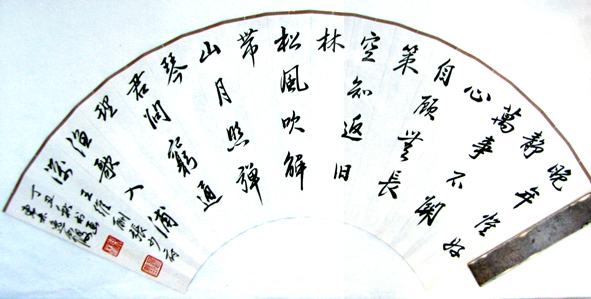 晚年惟好
靜
萬事不關
心
自顧無長
策
空知返旧
林
松風吹解
帶
山月照彈
琴
君問窮通
理
漁歌入浦
深
王維酬張少府
丁丑秋